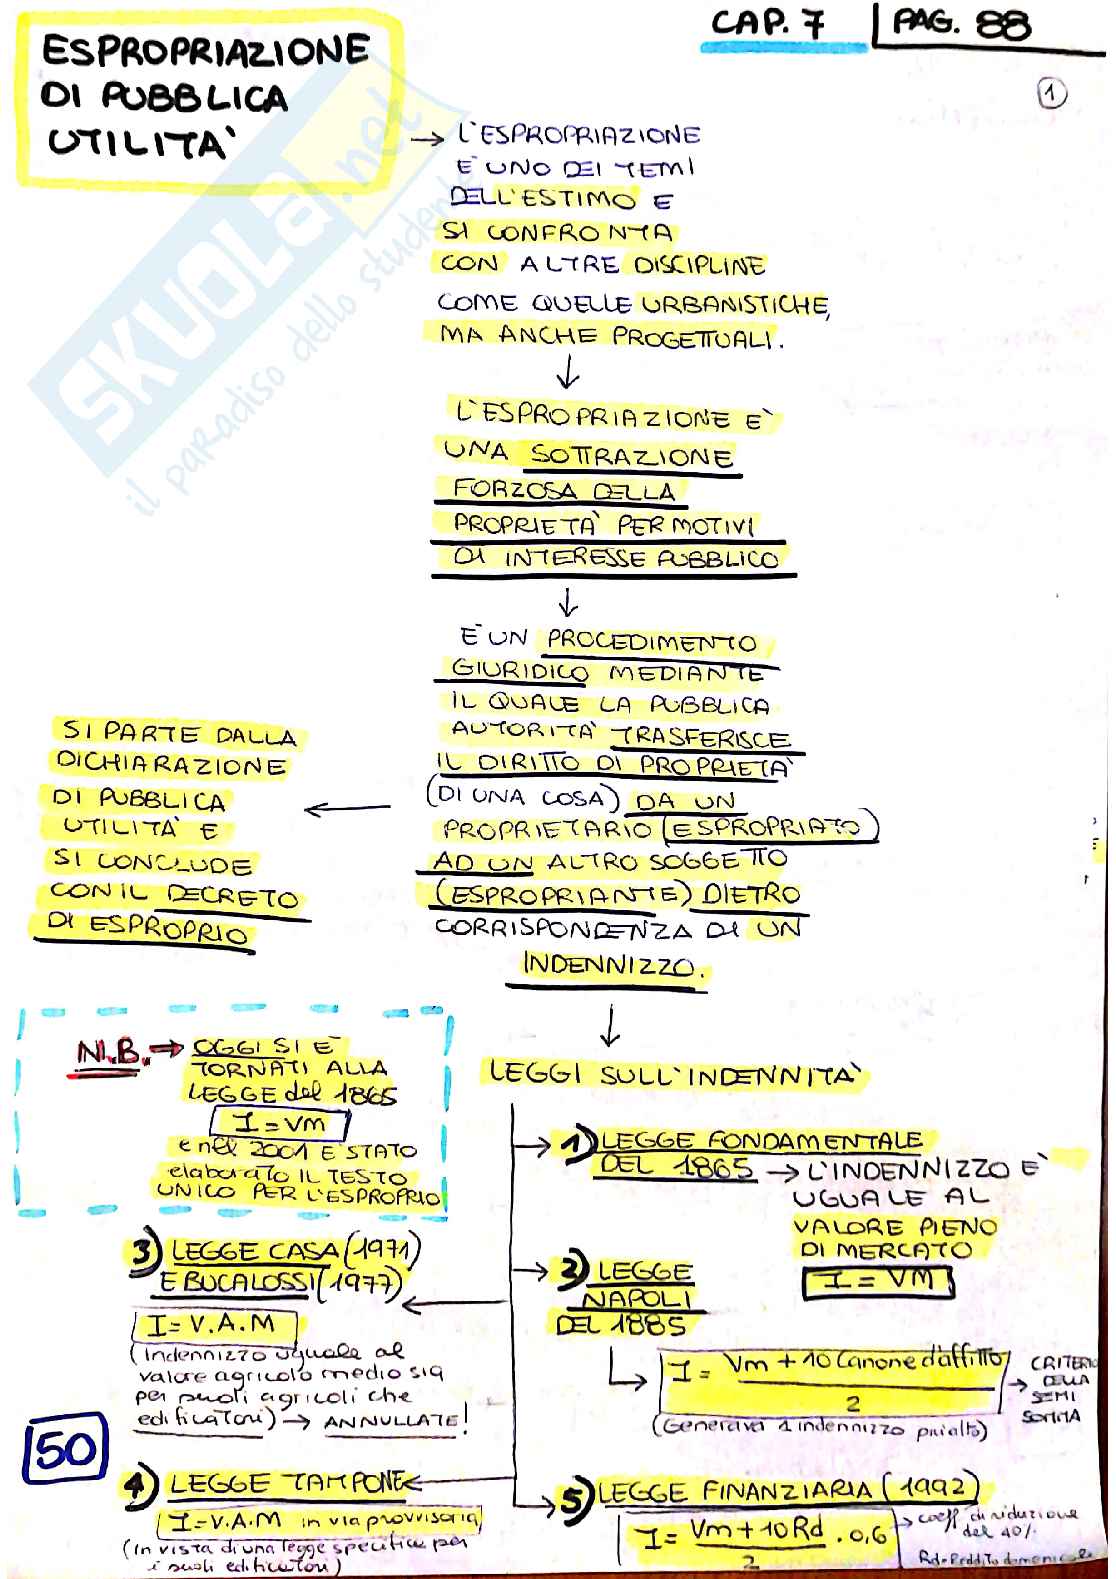 CAP. 7 | PAG. 88
ESPROPRIAZIONE
DI PUBBLICA
UTILITA'
1
→ L'ESPROPRIAZIONE
E' UNO DEI TEMI
DELL'ESTIMO E
SI CONFRONTA
CON ALTRE DISCIPLINE
COME QUELLE URBANISTICHE,
MA ANCHE PROGETTUALI.
L'ESPROPRIAZIONE E'
UNA SOTTRAZIONE
FORZOSA DELLA
PROPRIETA' PER MOTIVI
DI INTERESSE PUBBLICO
E' UN PROCEDIMENTO
GIURIDICO MEDIANTE
IL QUALE LA PUBBLICA
AUTORITA' TRASFERISCE
IL DIRITTO DI PROPRIETA'
(DI UNA COSA) DA UN
PROPRIETARIO (ESPROPRIATO)
AD UN ALTRO SOGGETTO
(ESPROPRIANTE) DIETRO
CORRISPONDENZA DI UN
INDENNIZZO.
SI PARTE DALLA
DICHIARAZIONE
DI PUBBLICA
UTILITA' E
SI CONCLUDE
CON IL DECRETO
DI ESPROPRIO
N.B. → OGGI SI E'
TORNATI ALLA
LEGGE del 1865
I = Vm
e nel 2001 E' STATO
elaborato IL TESTO
UNICO PER L'ESPROPRIO
LEGGI SULL'INDENNITA'
1) LEGGE FONDAMENTALE
DEL 1865 → L'INDENNIZZO E'
UGUALE AL
VALORE PIENO
DI MERCATO
I = VM
2) LEGGE
NAPOLI
DEL 1885
I = Vm + 10 Canone d'affitto / 2 → CRITERIO
DELLA
SEMI
SOMMA
(Generava 1 indennizzo più alto)
3) LEGGE CASA (1971)
E BUCALOSSI (1977)
I = V.A.M
(Indennizzo uguale al
valore agricolo medio sia
per suoli agricoli che
edificatori) → ANNULLATE!
50
4) LEGGE TAMPONE
I = V.A.M in via provvisoria
(in vista di una legge specifica per
i suoli edificatori)
5) LEGGE FINANZIARIA (1992)
I = Vm + 10 Rd / 2 . 0,6 → coeff. di riduzione
del 40%
Rd = Reddito domenicale
SKUOLA.net
il paradiso dello studente